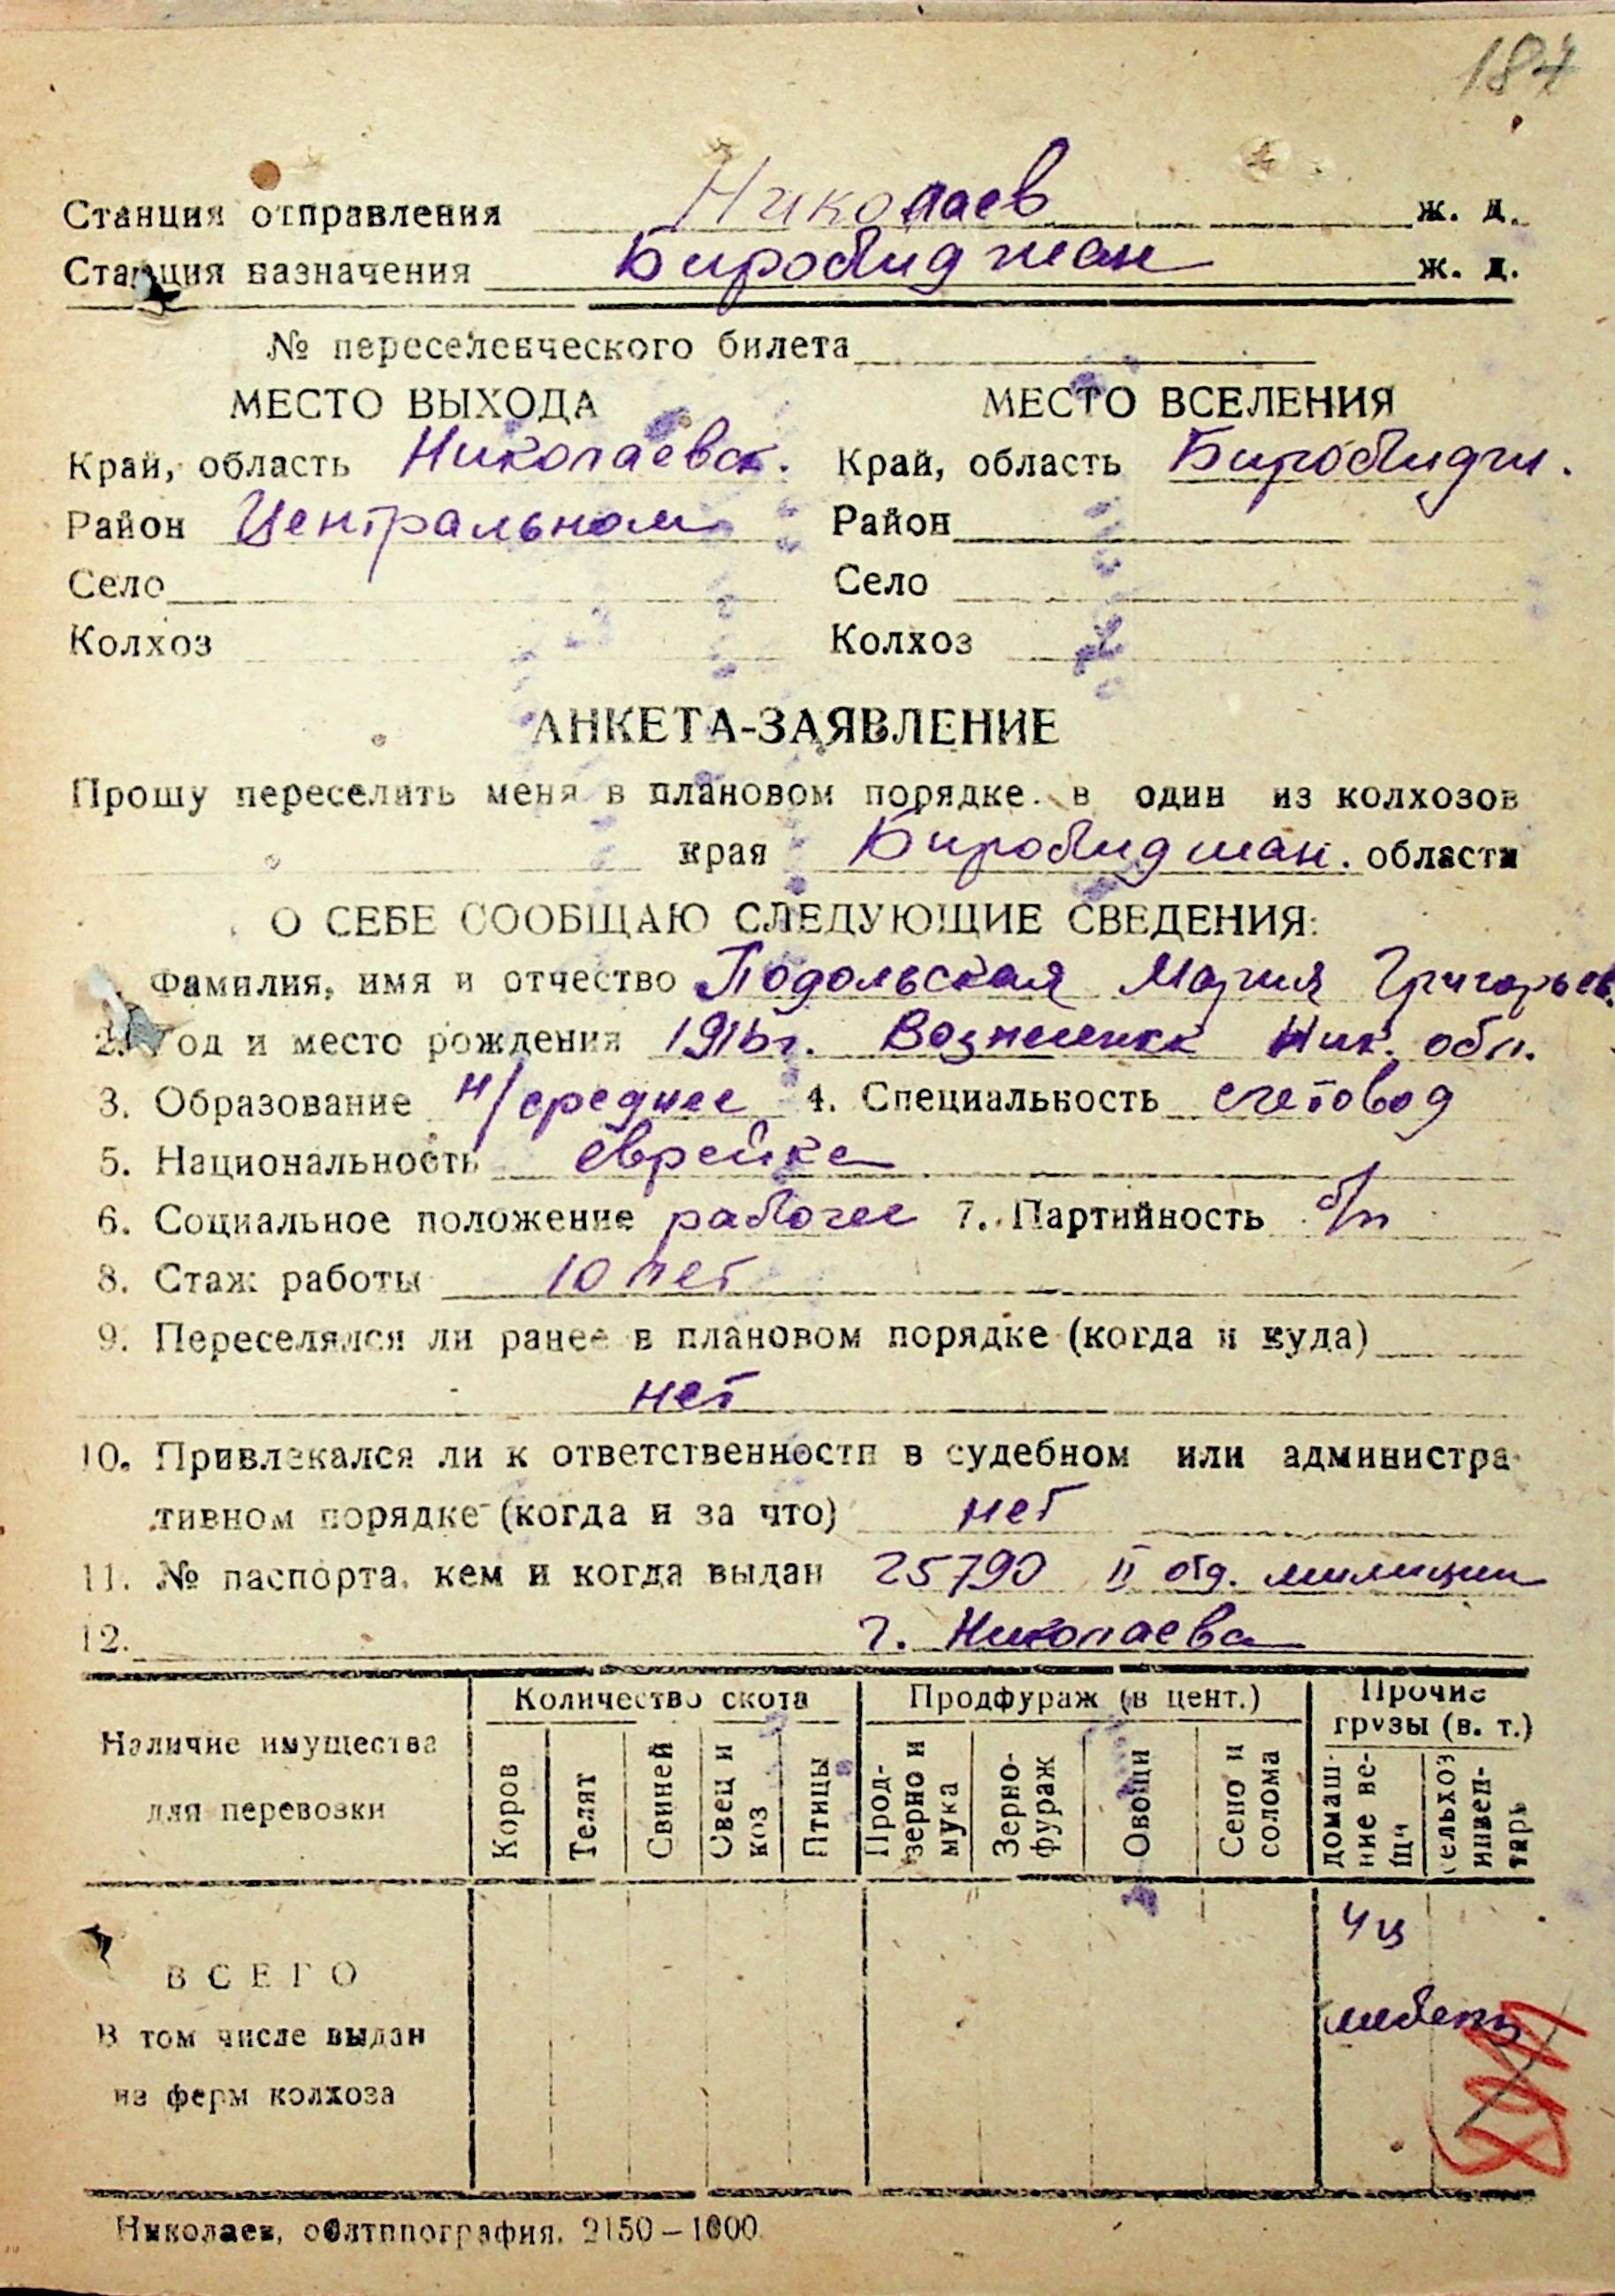 184
Станция отправления Николаев ж. д.
Станция назначения Биробиджан ж. д.
№ переселенческого билета
МЕСТО ВЫХОДА МЕСТО ВСЕЛЕНИЯ
Край, область Николаевск. Край, область Биробидж.
Район Центральном Район
Село Село
Колхоз Колхоз
АНКЕТА-ЗАЯВЛЕНИЕ
Прошу переселить меня в плановом порядке в один из колхозов
края Биробиджан. области
О СЕБЕ СООБЩАЮ СЛЕДУЮЩИЕ СВЕДЕНИЯ:
Фамилия, имя и отчество Подольская Мария Григорьев.
2. Год и место рождения 1916 г. Вознесенск Ник. обл.
3. Образование н/среднее 4. Специальность счетовод
5. Национальность еврейка
6. Социальное положение рабочее 7. Партийность б/п
8. Стаж работы 10 лет
9. Переселялся ли ранее в плановом порядке (когда и куда)
нет
10. Привлекался ли к ответственности в судебном или администра-
тивном порядке (когда и за что) нет
11. № паспорта, кем и когда выдан 25790 II отд. милиции
12. г. Николаева
Наличие имущества
для перевозки
Количество скота Продфураж (в цент.) Прочие грузы (в. т.)
Коров Телят Свиней Овец и коз Птицы Прод-зерно и мука Зерно-фураж Овощи Сено и солома домаш-ние ве-щи сельхоз инвен-тарь
4 ц
ВСЕГО
мебель
В том числе выдан
из ферм колхоза
Николаев, облтипография. 2150—1000